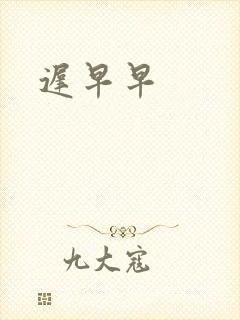 遲早早
九大寇